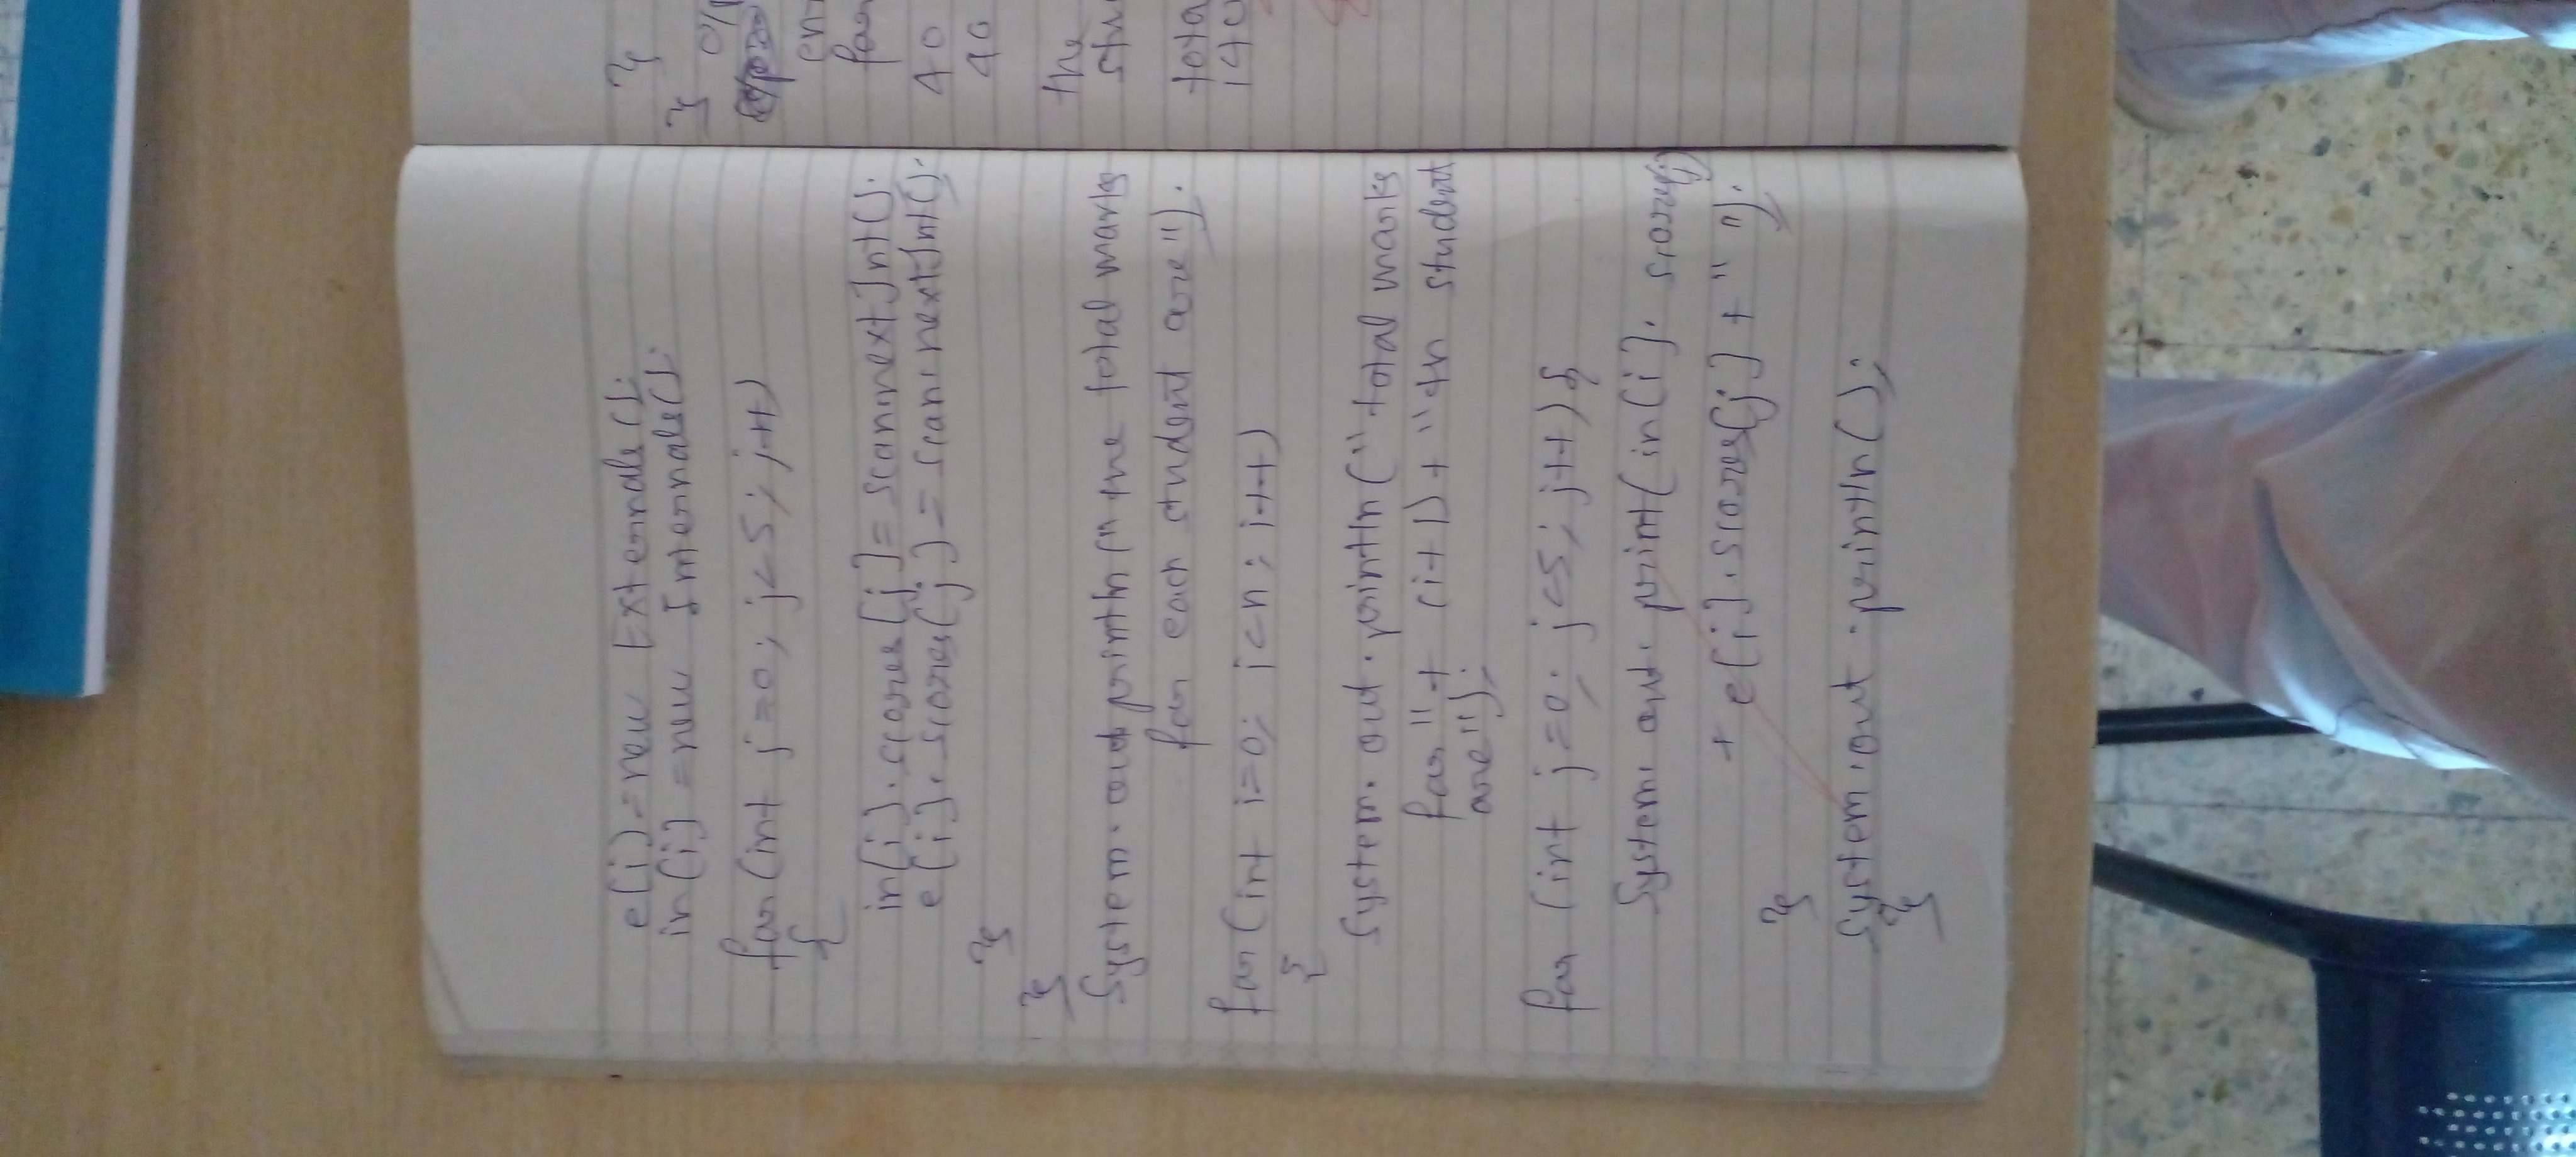 e[i] = new Externals();
in[i] = new Internals();
for(int j=0; j<5; j++)
{
in[i].scores[j] = scan.nextInt();
e[i].scores[j] = scan.nextInt();
}
}
System.out.println("the total marks
for each student are");
for(int i=0; i<n; i++)
{
System.out.println("total marks
for" + (i+1) + "th student
are");
for (int j=0; j<5; j++){
System.out.print(in[i].scores[j]
+ e[i].scores[j] + " ");
}
System.out.println();
}
}
}
}
for
40
40
the